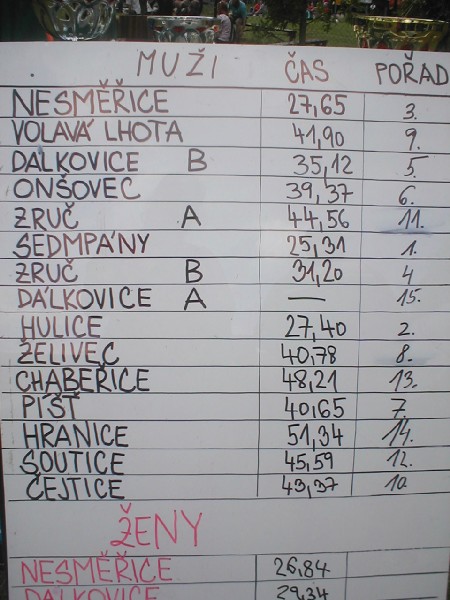 MUŽI ČAS POŘAD
NESMĚŘICE 27,65 3.
VOLAVÁ LHOTA 41,90 9.
DALKOVICE B 35,12 5.
ONŠOVEC 39,37 6.
ZRUČ A 44,56 11.
SEDMPÁNY 25,31 1.
ZRUČ B 31,20 4
DÁLKOVICE A — 15.
HULICE 27,40 2.
ŽELIVEC 40,78 8.
CHABEŘICE 48,21 13.
PÍŠŤ 40,65 7.
HRANICE 51,34 14.
SOUTICE 45,59 12.
ČEJTICE 43,37 10
ŽENY
NESMĚŘICE 26,84
DALKOVICE 29,34